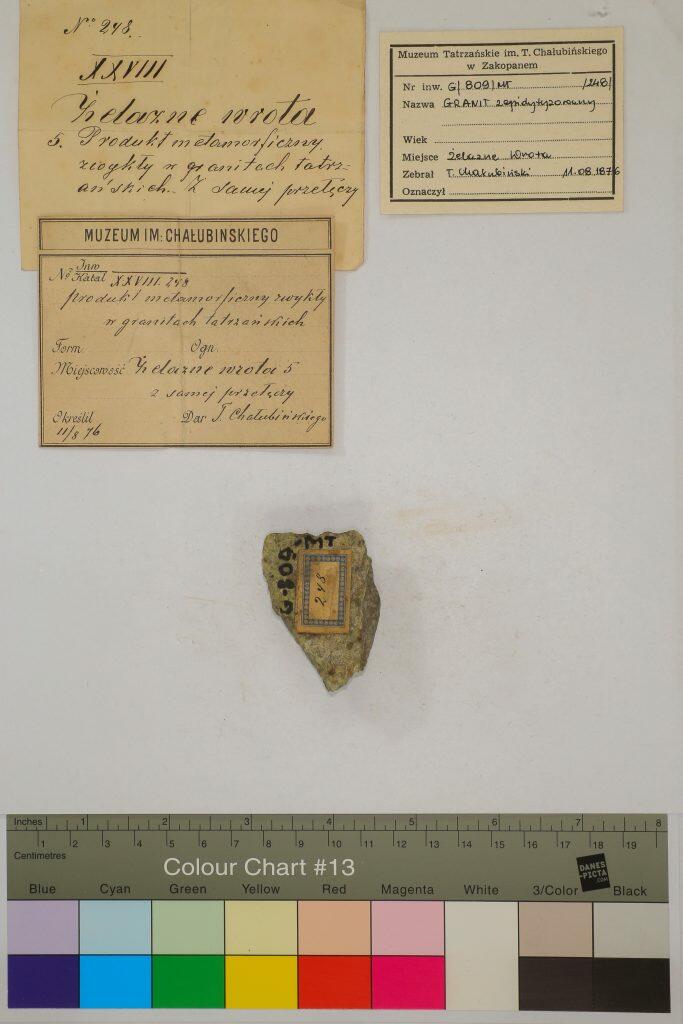 No 248.
XXVIII
Żelazne wrota
5. Produkt metamorficzny,
zwykły w granitach tatrz-
ańskich. Z samej przełęczy
Muzeum Tatrzańskie im. T. Chałubińskiego
w Zakopanem
Nr inw. G/809/MT /248/
Nazwa GRANIT zepidytyzowany
Wiek
Miejsce Żelazne Wrota
Zebrał T. Chałubiński 11.08.1876
Oznaczył
MUZEUM IM: CHAŁUBINSKIEGO
No Inw Katal XXVIII. 248
produkt metamorficzny zwykły
w granitach tatrzańskich
Form. Ogn.
Miejscowość Żelazne wrota 5
z samej przełęczy
Określił Dar T. Chałubińskiego
11/8 76
G-809-MT
248
Inches 1 2 3 4 5 6 7 8
1 2 3 4 5 6 7 8 9 10 11 12 13 14 15 16 17 18 19
Centimetres
Colour Chart #13
DANES
-PICTA
.COM
Blue Cyan Green Yellow Red Magenta White 3/Color Black